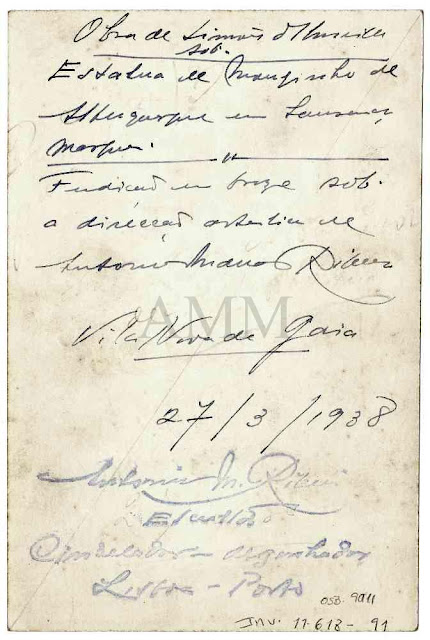 Obra de Simões d'Almeida
sob.
Estatua de Mousinho de
Albuquerque em Lourenço
Marques.
Fundição em bronze sob.
a direcção artistica de
Antonio Maria Ribeiro
AMM
Vila Nova de Gaia
27/3/1938
Antonio M. Ribeiro
Escultor
Cinzelador - desenhador
Lisboa - Porto
OSB. 9011
INV. 11-618-91